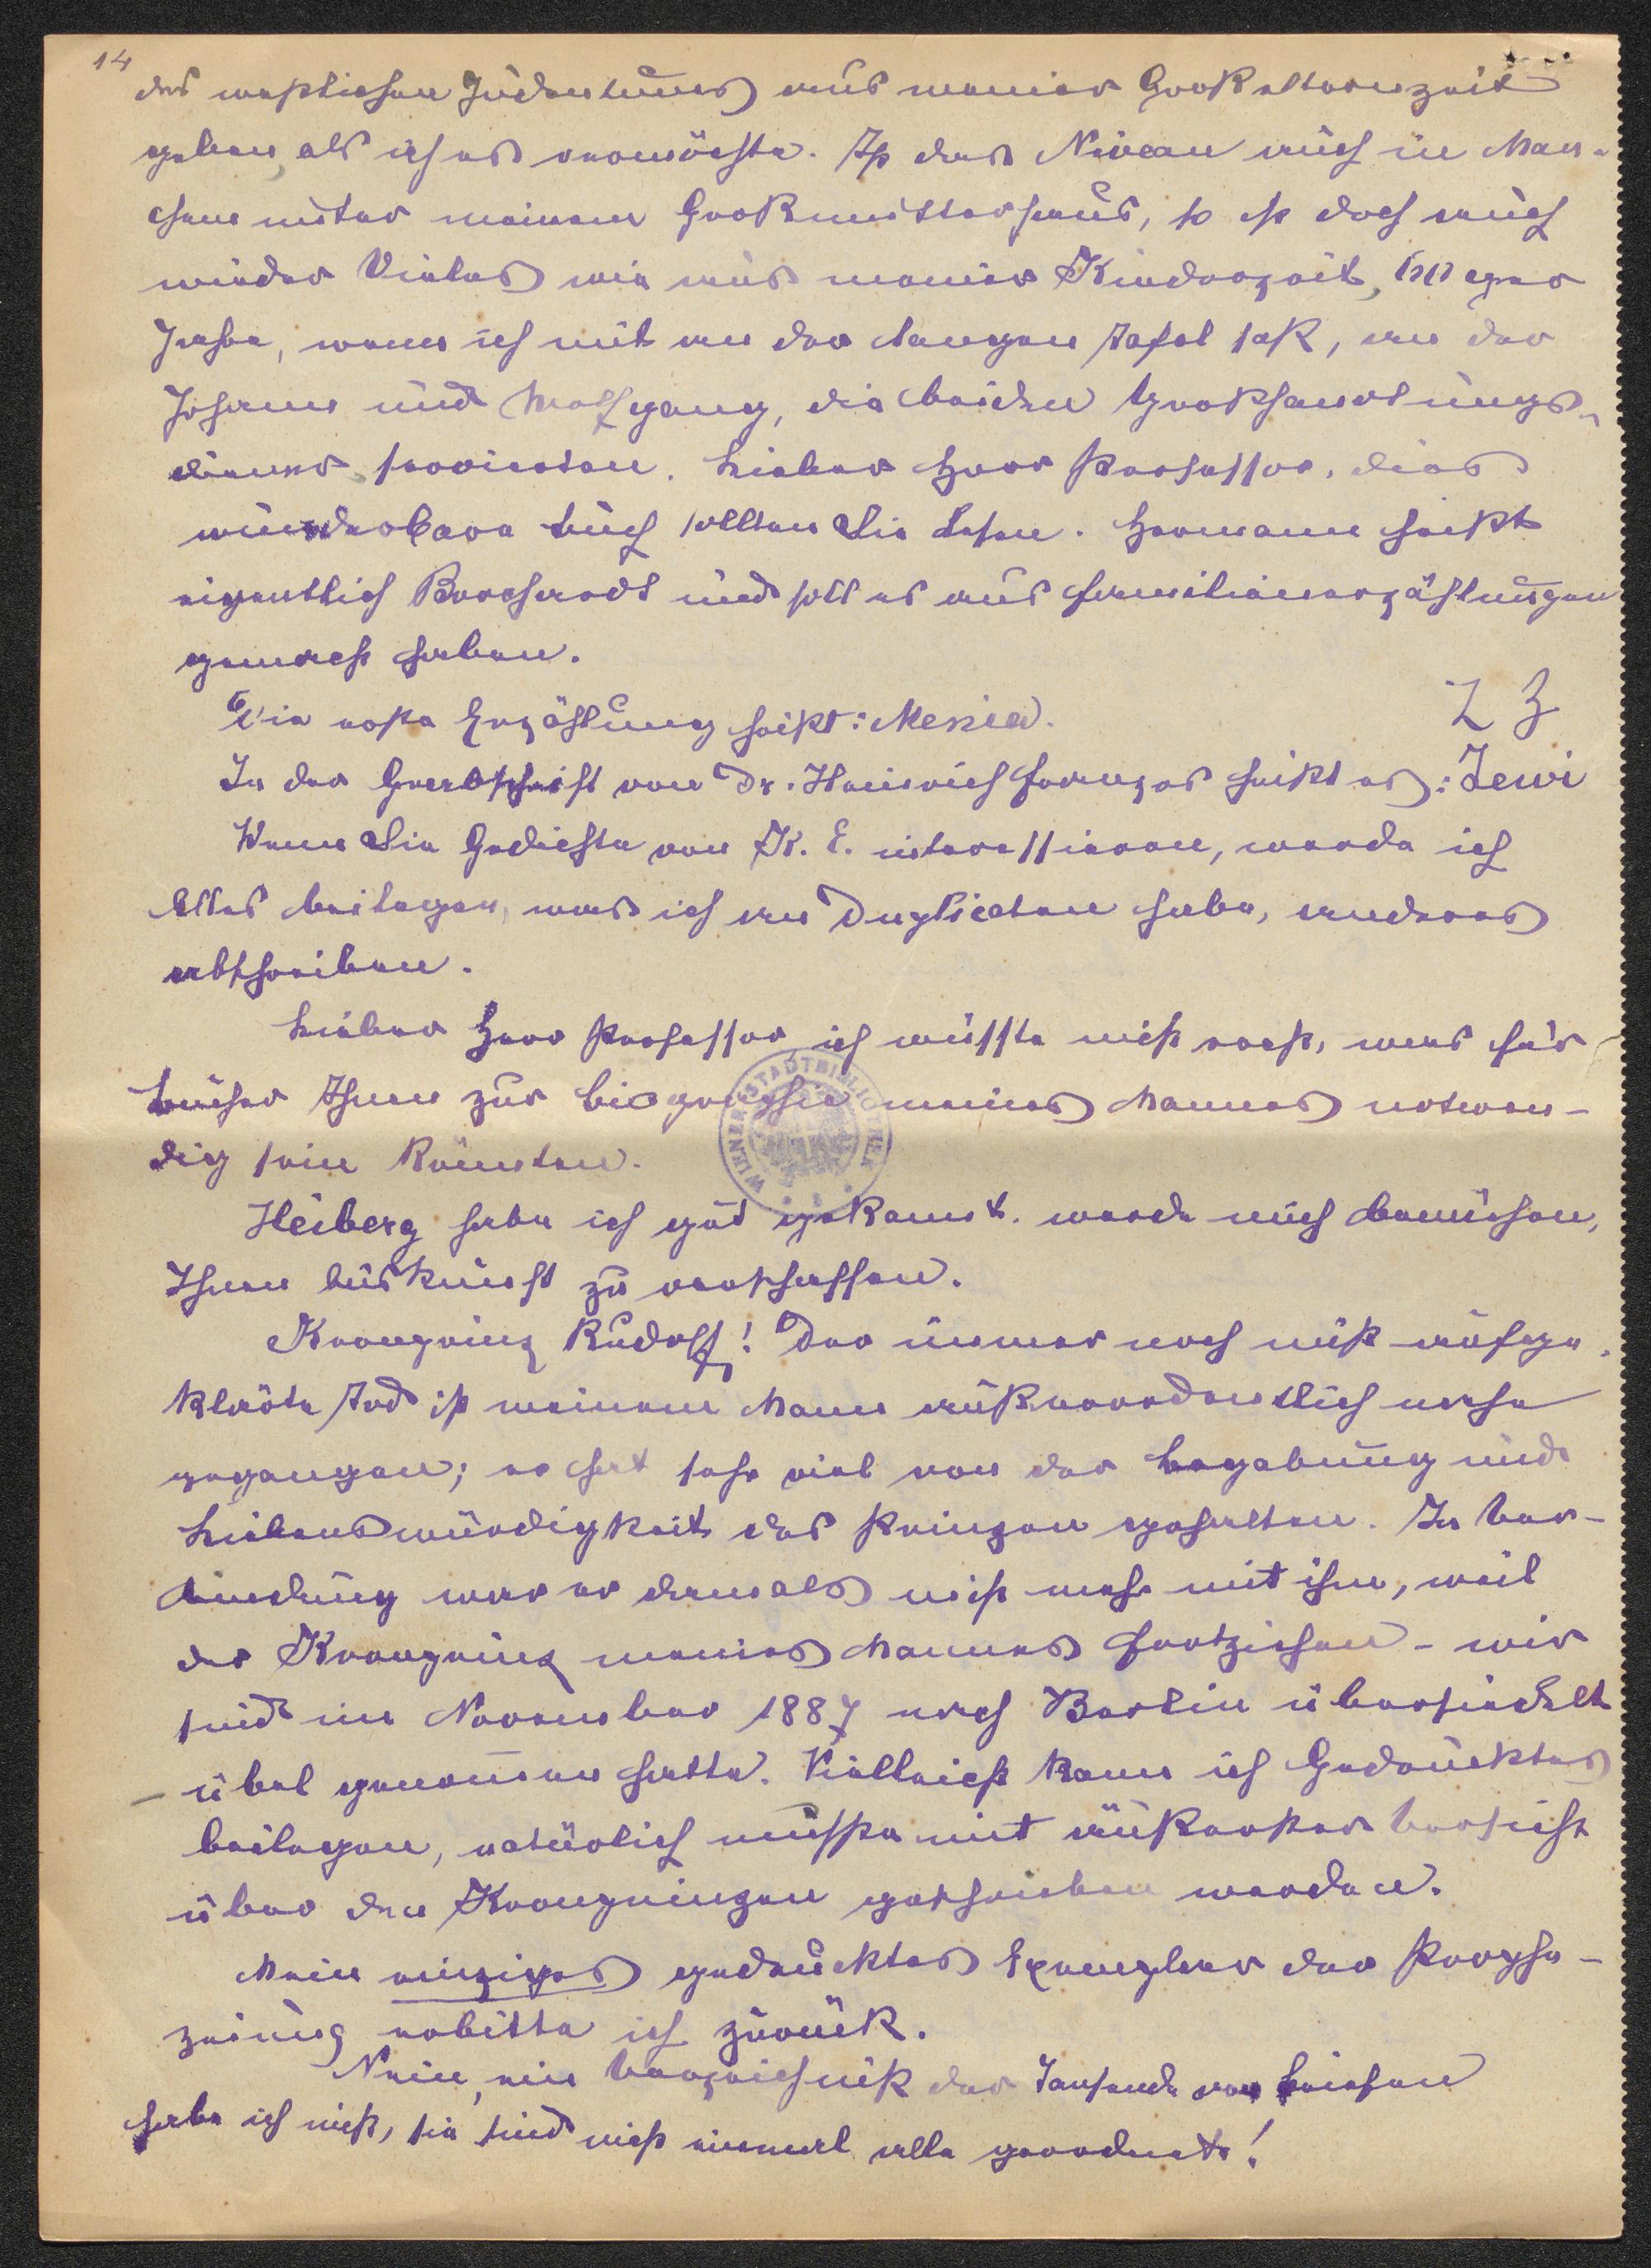 14
des westlichen Judentums aus meiner Großelternzeit
geben, als ich es vermöchte. Ist das Niveau auch in Man-
chem unter meinem Großmutterhaus, so ist doch auch
wieder Vieles wie aus meiner Kinderzeit, 60ger
Jahre, wenn ich mit an der langen Tafel saß, an der
Johann und Wolfgang, die beiden Großhandlungs-
diener servierten. Lieber Herr Professor, dies
wunderbare Buch sollten Sie lesen. Hermann heißt
eigentlich Borchardt und soll es aus Familienerzählungen
gemacht haben.
Die erste Erzählung heißt: Menia. Z Z
In der Grabschrift von Dr. Heinrich Franzos heißt es: Zewi
Wenn Sie Gedichte von K. E. interessieren, werde ich
Alles beilegen, was ich an Duplicaten habe, anderes
abschreiben.
Lieber Herr Professor, ich wüsste nicht recht, was für
Bücher Ihnen zur Biographie meines Mannes notwen-
dig sein könnten.
Heiberg habe ich gut gekannt. werde mich bemühen,
Ihnen Auskunft zu verschaffen.
Kronprinz Rudolf! Der immer noch nicht aufge-
klärte Tod ist meinem Mann außerordentlich nahe
gegangen; er hat sehr viel von der Begabung und
Liebenswürdigkeit des Prinzen gehalten. In Ver-
bindung war er damals nicht mehr mit ihm, weil
der Kronprinz meines Mannes Fortziehen - wir
sind im November 1887 nach Berlin übersiedelt
- übel genommen hatte. Vielleicht kann ich Gedrucktes
beilegen, natürlich müsste mit äußerster Vorsicht
über den Kronprinzen geschrieben werden.
Mein einziges gedrucktes Exemplar der Prophe-
zeiung erbitte ich zurück.
Nein, ein Verzeichnis der Tausende von Briefen
habe ich nicht, sie sind nicht einmal alle geordnet!
WIENER STADTBIBLIOTHEK